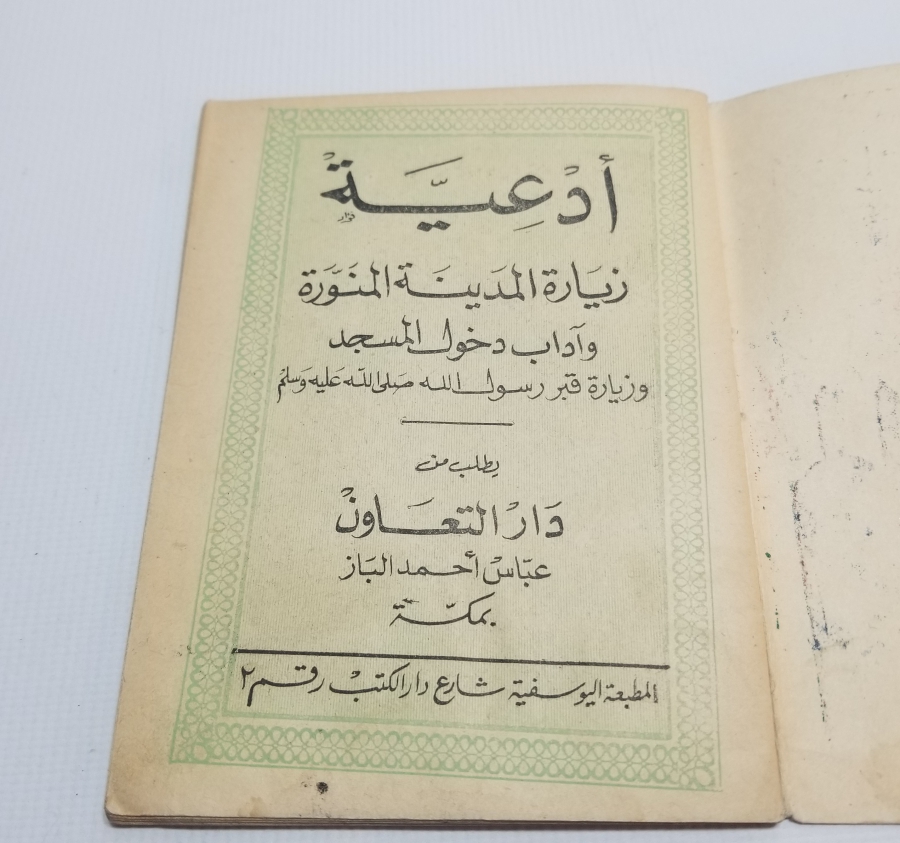 أَدْعِيَّةْ
زيَارة المَدينَة المنَوَّرة
وآداب دخول المسجد
وزيارة قبر رسول الله صَلى الله عَليه وَسلم
يطلب من
دَارْ التعَاونْ
عبّاسْ أحمد البَاز
بمكّة
المطبعة اليوسفية شارع دار الكتبْ رقم ٢